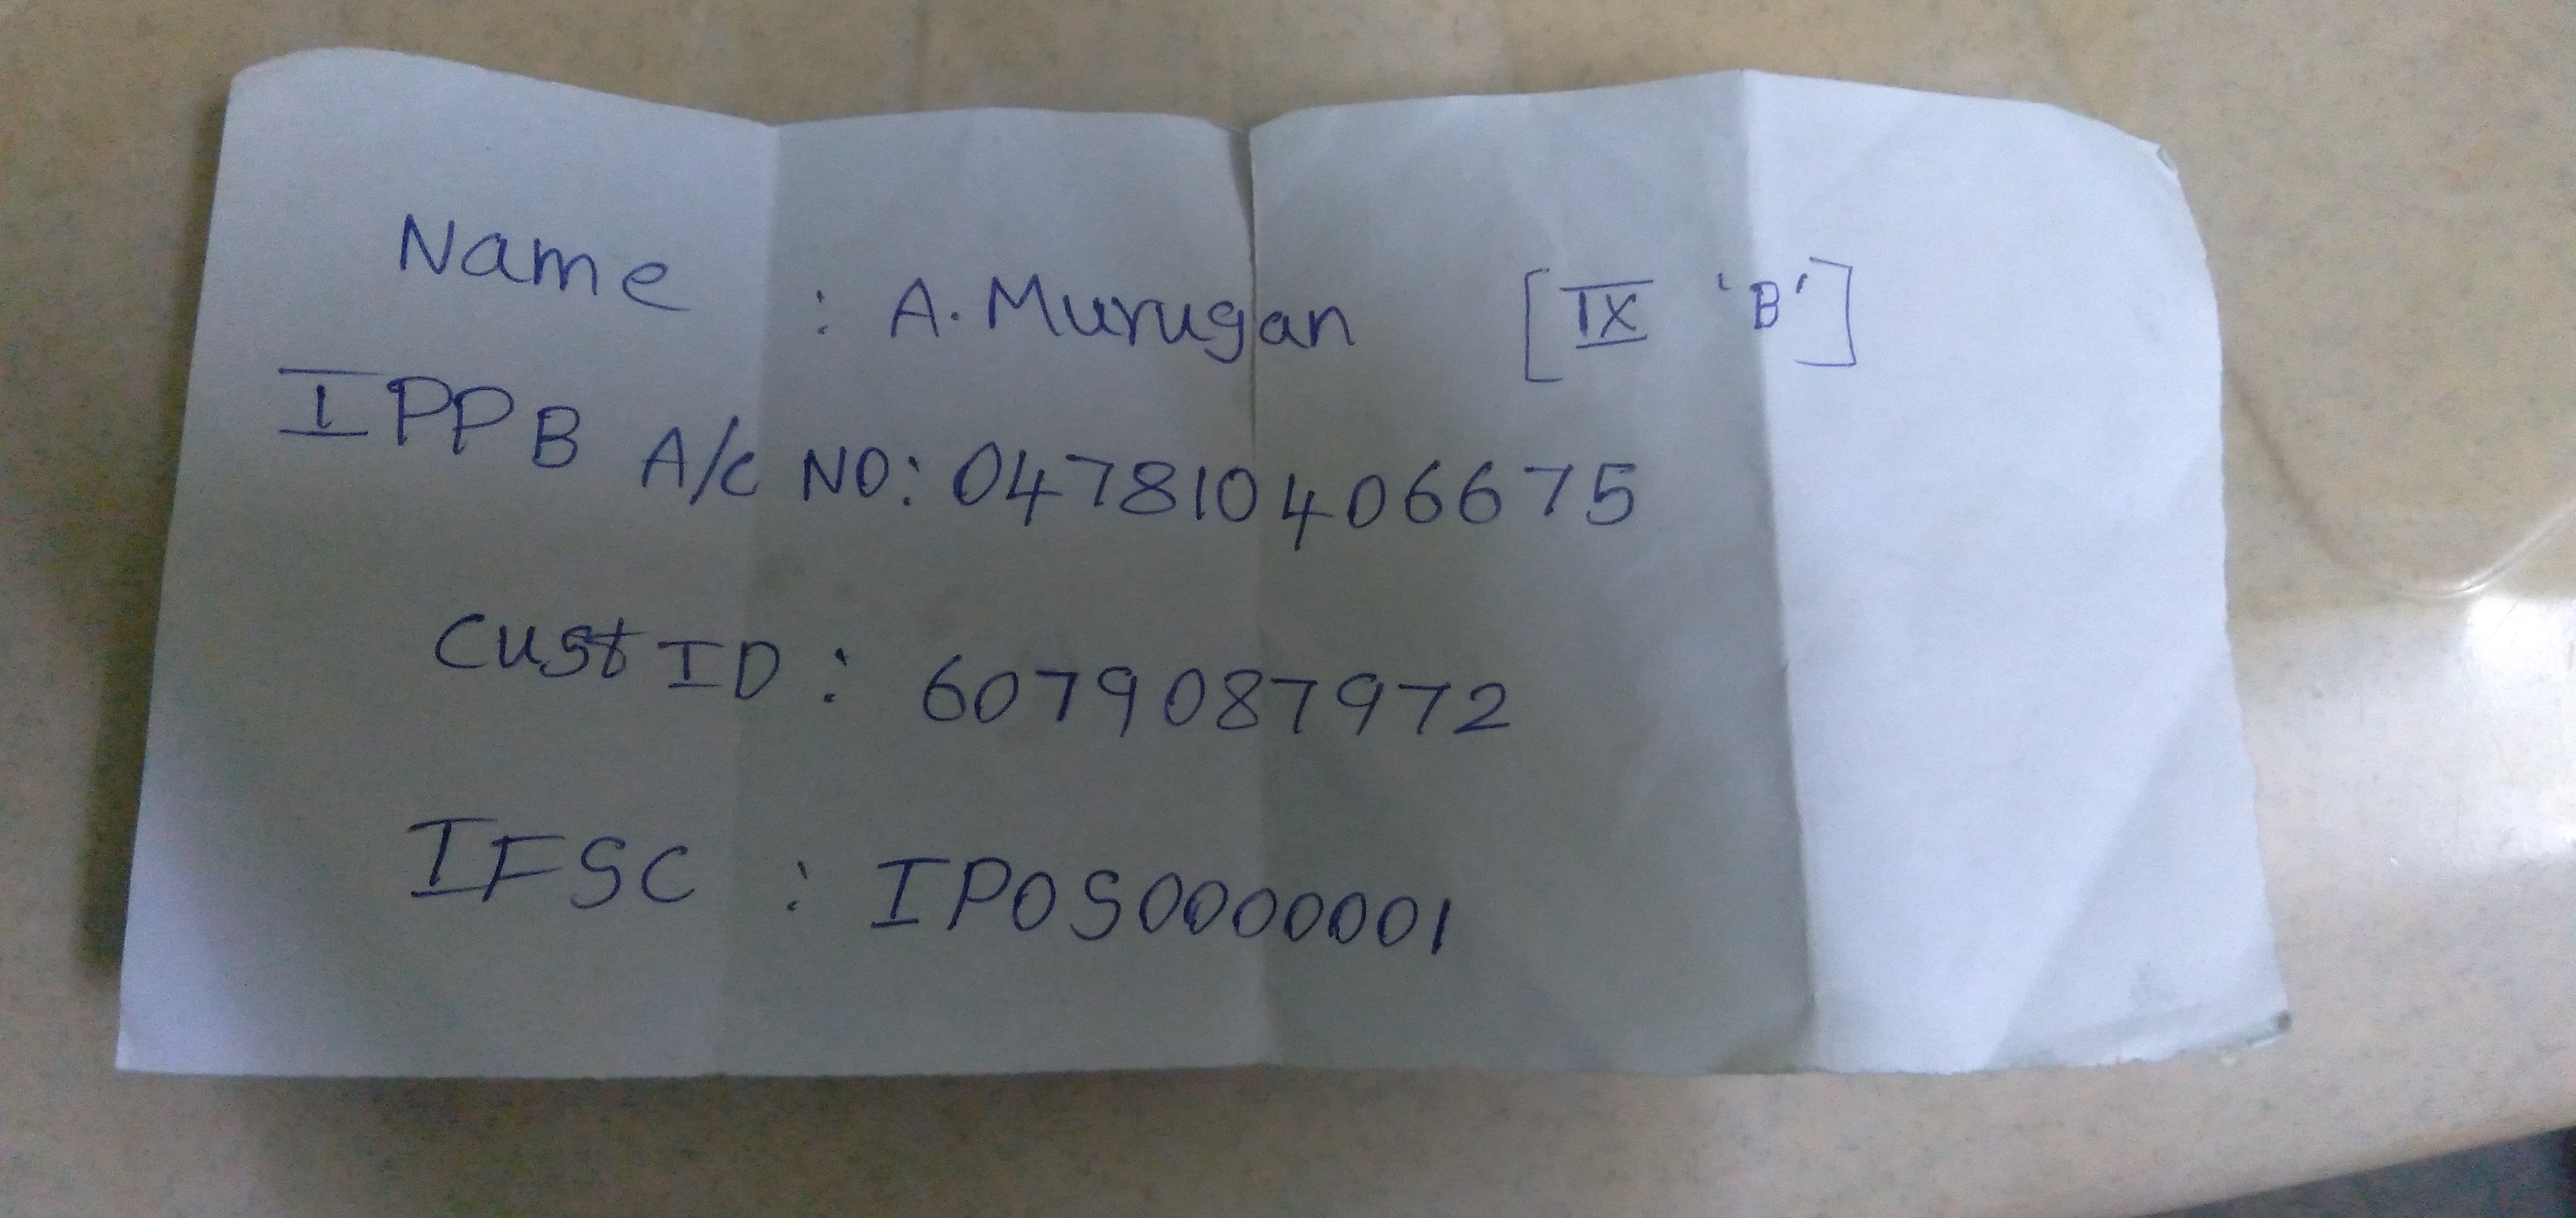 Name : A. Murugan [IX 'B']
IPPB A/c NO: 047810406675
Cust ID : 6079087972
IFSC : IPOS0000001